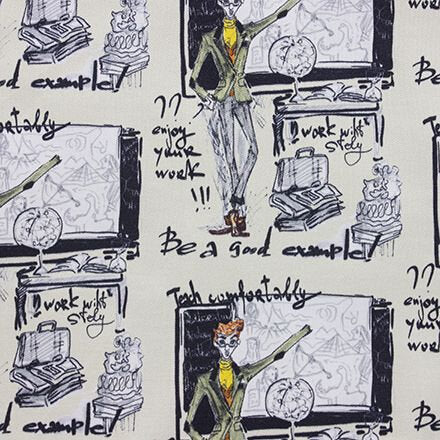 od example!
Be a
ortably
??
enjoy
your
work
!!!
"work with"
Stely
Be a good example!
"work with"
Stely
Tech comfortably
??
enjoy
your
work
od example!